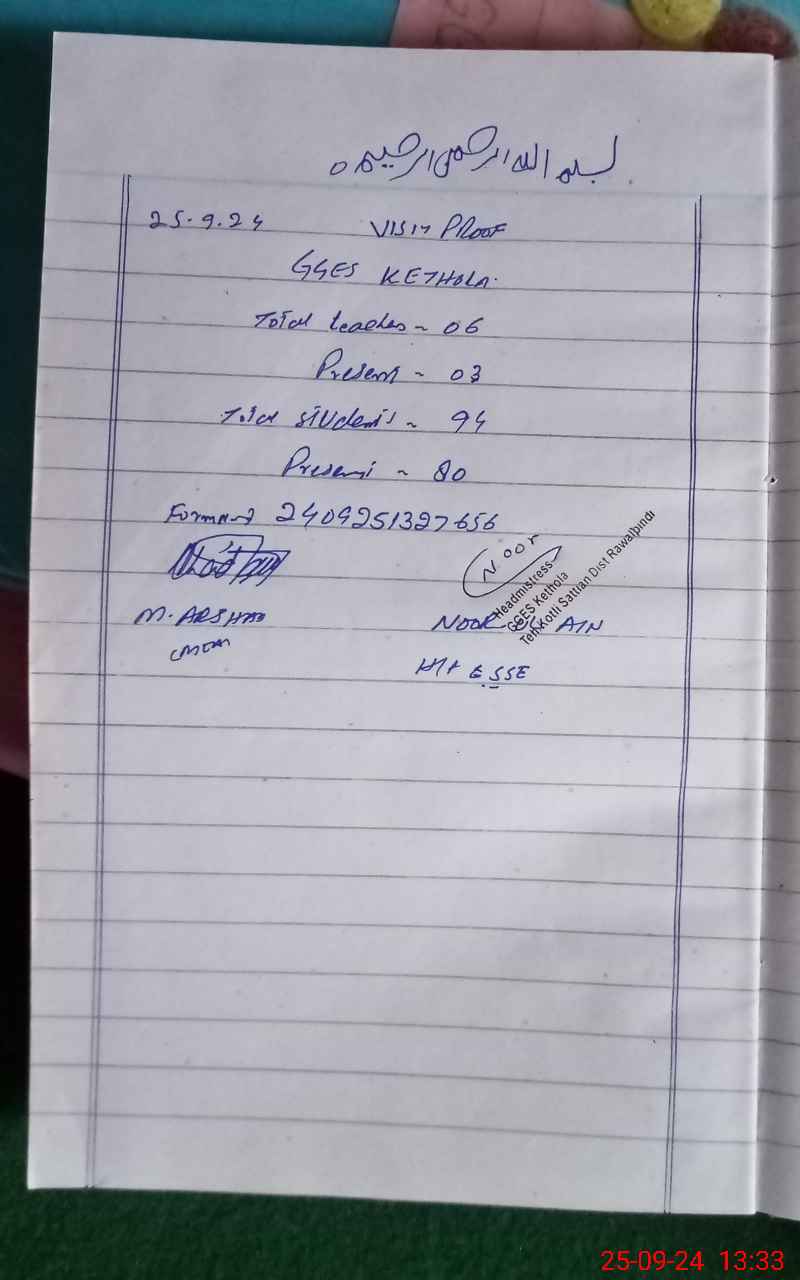 بسم الله الرحمن الرحيم ه
25.9.24 VISIT PROOF
GGES KETHOLA.
Total teaches ~ 06
Present ~ 03
Total students ~ 94
Present ~ 80
Format 2409251327656
Noor
Headmistress
GGES Kethola
Teh Kotli Sattian Dist Rawalpindi
M. ARSHAD NOOR UL AIN
H/M ESSE
25-09-24 13:33